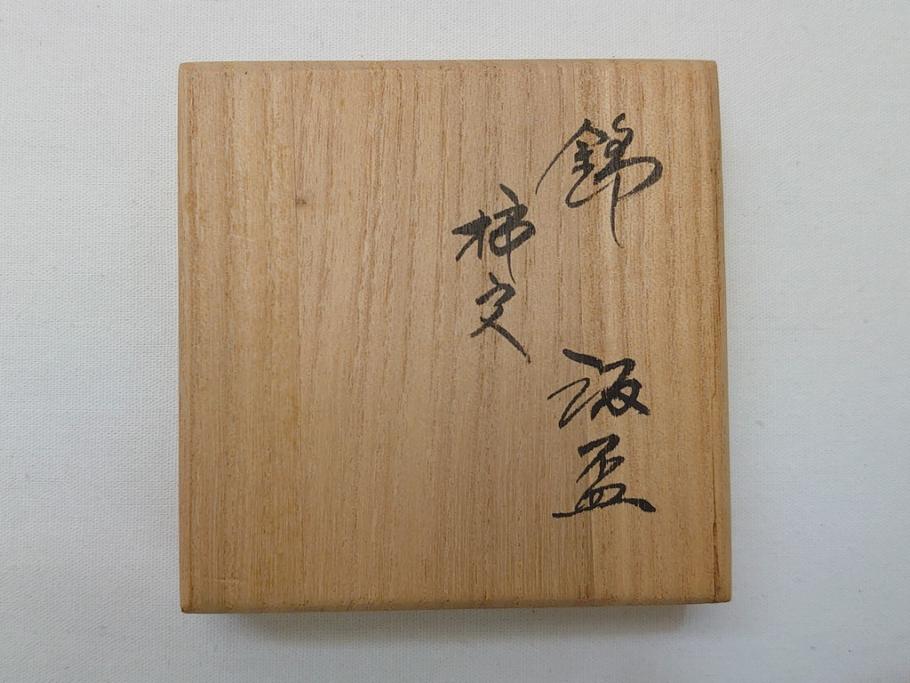 錦 酒盃
柿文